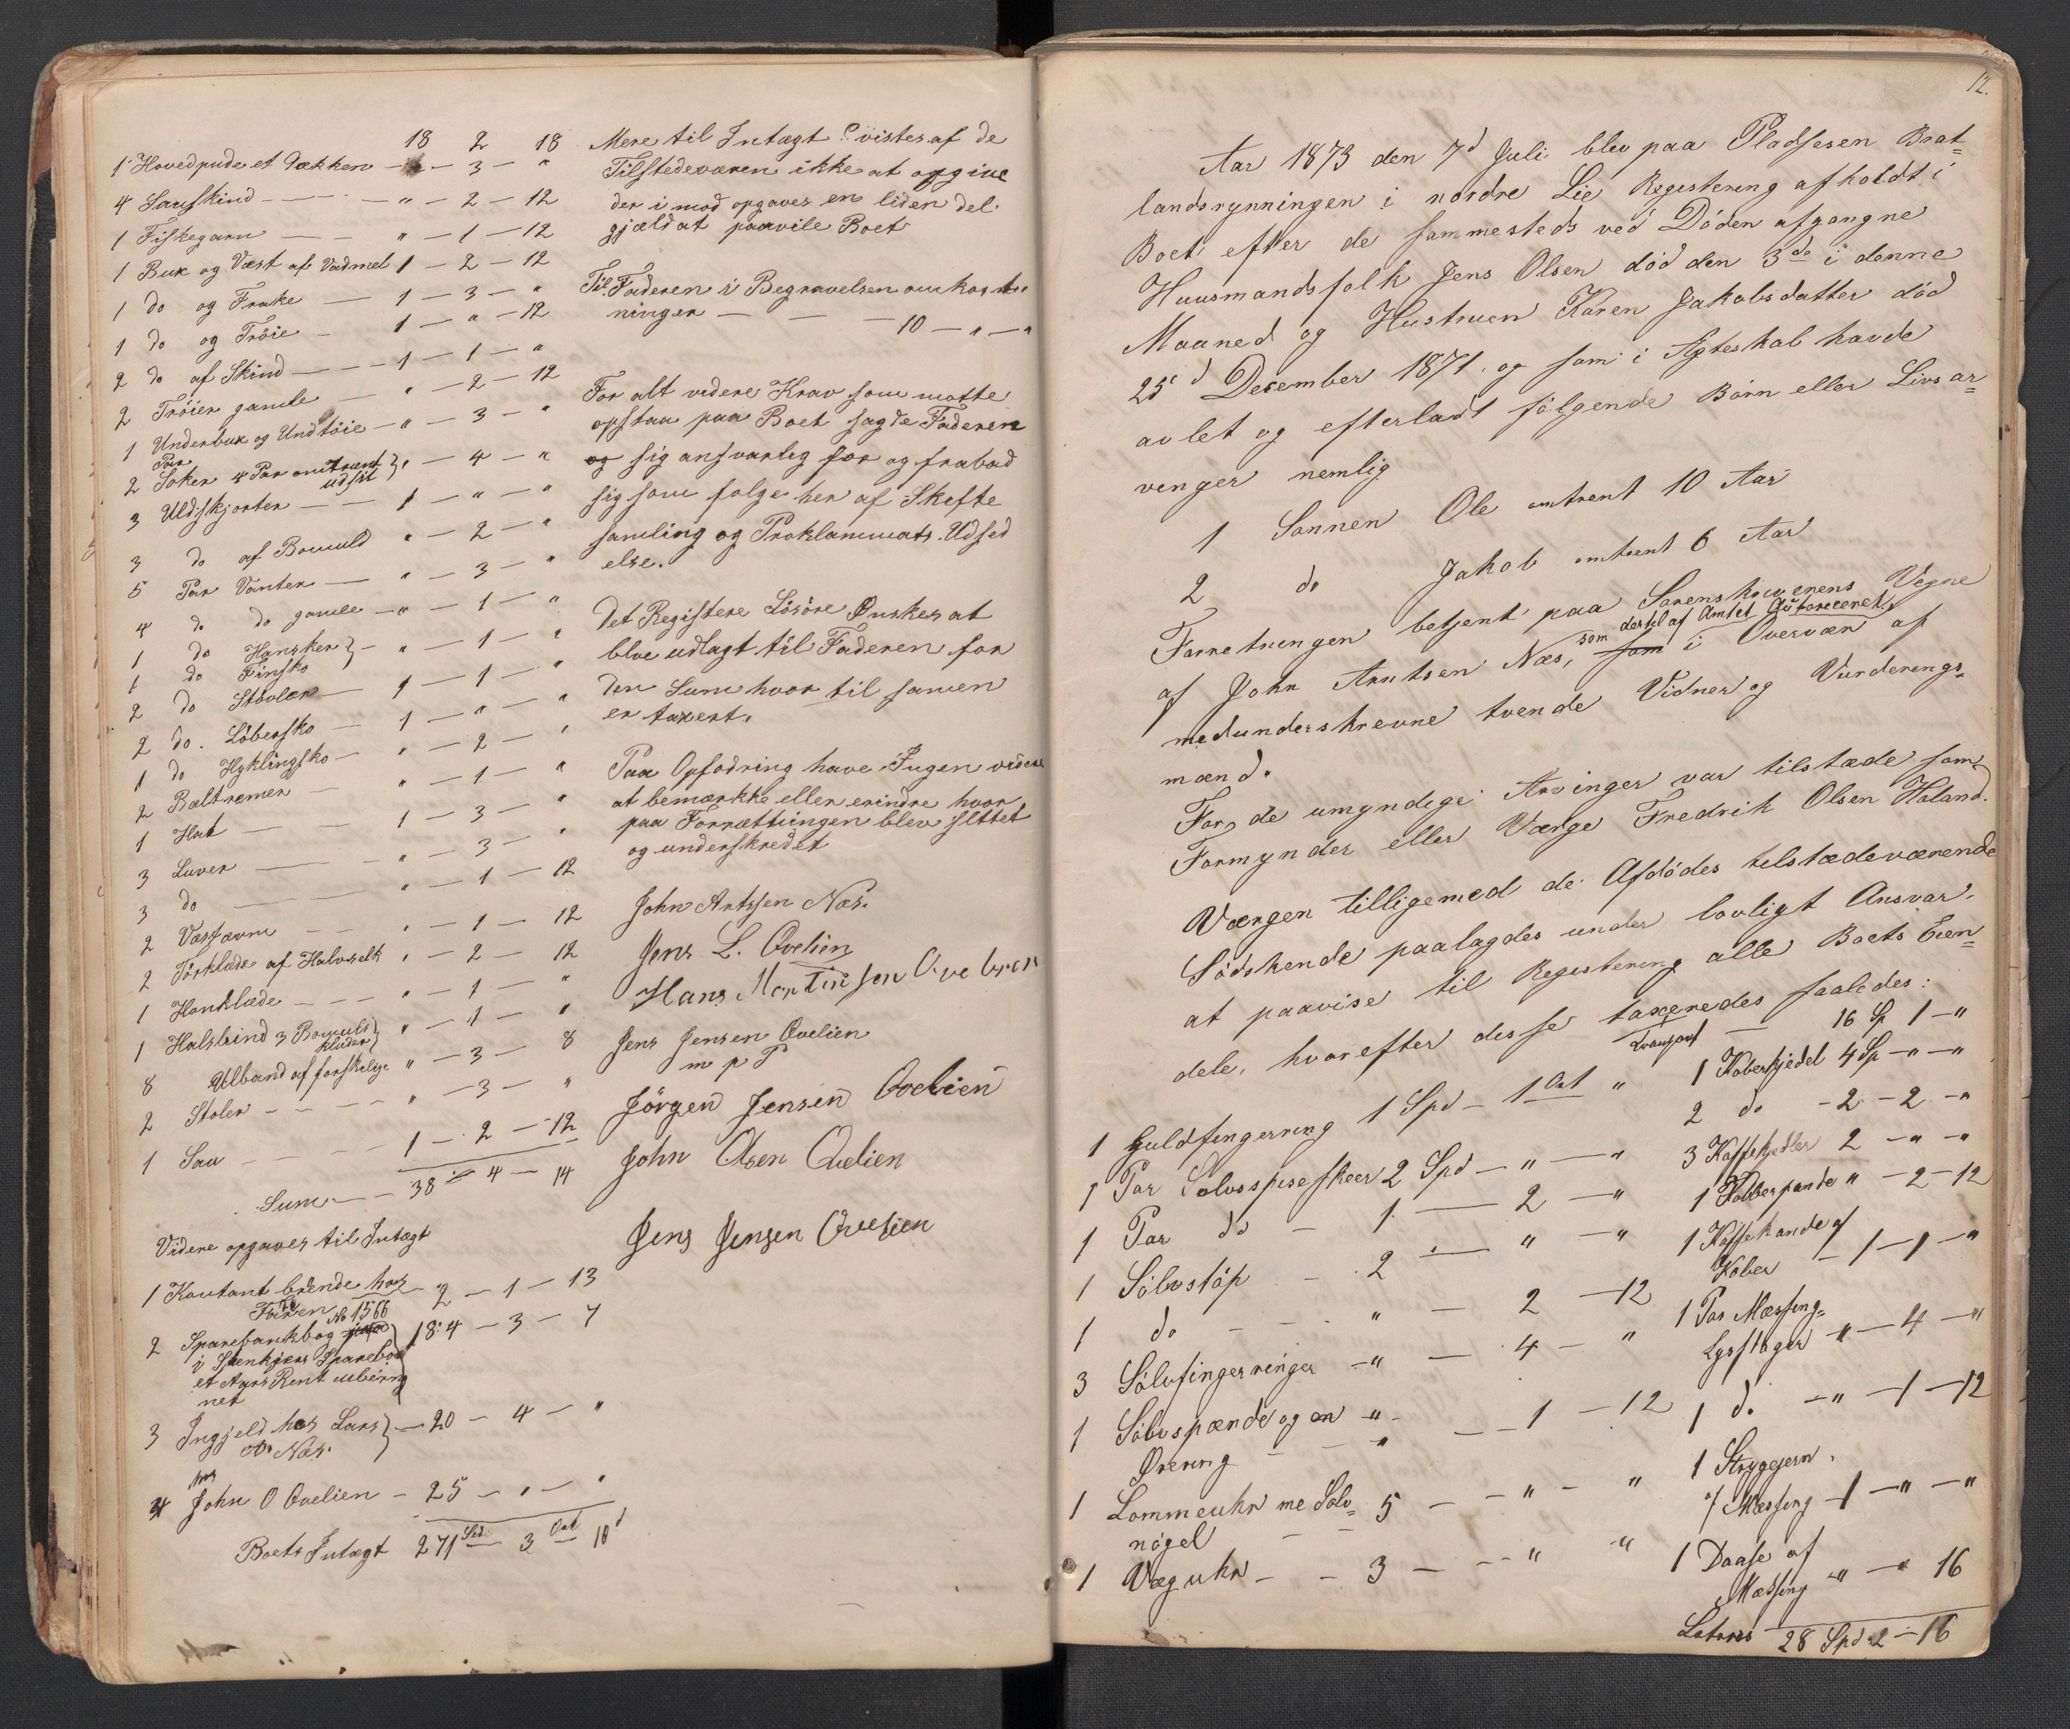 18 2 18
1 Hovedpude et Dækken — " — 3 — "
4 Sauskind — " — 2 — 12
1 Fiskegarn — " — 1 — 12
1 Buk og Væst af Vadmel 1 — 2 — 12
1 do og Frake — 1 — 3 — "
1 do og Trøie — 1 — " — 12
2 do af Skind — 1 — 1 — "
2 Trøier gamle — " — 2 — 12
1 Underbux og Undtøie — " — 3 — "
2 Par Soker 4 Par omtrent udslit } " — 4 — "
3 Uldskjorter — 1 — " — "
3 do af Bomuld " — 2 — "
5 Par Vanter — " — 3 — "
4 do do gamle — " — 1 — "
1 do Hansker }
1 do Finsko } — " — 1 — "
2 do Støvler — 1 — 1 — "
2 do. Løbersko — 1 — " — "
1 do Hyklingsko — " — 2 — "
2 Bæltremer — " — 1 — "
1 Hat — 1 — 3 — "
3 Luver — " — 3 — "
3 do — " — 1 — 12
2 Væstævne — " — 1 — 12
2 Tørklæde af Halvselk " — 2 — 12
1 Hanklæde — " — 1 — "
1 Halsbind 3 Bomulds kluder } " — 1 — "
8 Ulband af forskelige " — 3 — 8
2 Stoler — " — 3 — "
1 Sau — 1 — 2 — 12
Sum — 38 — 4 — 14
Videre opgaves til Intægt
1 Kontant beende hos Faderen — 2 — 1 — 13
2 Sparebankbog No 1566
i Stenkjærs Sparebank } 184 — 3 — 7
et Aars Rent uberegnet
3 Ingjeld hos Lars O. Næs } — 20 — 4 — "
4 hos John O Ovelien — 25 — " — "
Boets Intægt 271 Spd 3 Ort 10 s
Mere til Intægt vistes af de
Tilstedeværen ikke at opgive
der i mod opgaves en liden del
gjæld at paavile Boet
Til Faderen i Begravelsen omkost
ninger — 10 — " — "
For alt videre Krav som motte
opstaa paa Boet sagde Faderen
og sig ansvarlig for og frabad
sig som følge her af Skefte
samling og Proklammats Udsed
else.
Det Registere Løsøre Ønskes at
blve udlagt til Faderen for
den Sum hvor til samen
er taxert.
Paa Opfodring have Jngen videre
at bemærkke eller erindre hvor
paa Forrættningen blev slttet
og underskredet
John Arntsen Næs.
Jens L. Ovelien
Hans Martinsen Overbreen
Jens Jensen Ovelien
m p P
Jörgen Jensen Ovelien
John Olsen Ovelien
Jens Jensen Ovelien
12.
Aar 1873 den 7d Juli blev paa Pladsesen Brat=
landsrynningen i nordre Lie Registering afholdt i
Boet efter de sammesteds ved Døden afgangne
Huusmandsfolk Jens Olsen død den 3de i denne
Maaned og Hustruen Karen Jakobsdatter død
25d December 1871. og som i Ægteskab havde
avlet og efterladt følgende Børn eller Livsar=
venger nemlig
1 Sønnen Ole omtrent 10 Aar
2 do Jakob omtrent 6 Aar
Forretningen betjent paa Sorenskriverens Vegne
af John Arntsen Næs, som dertil af Amtet Autoriceret, som i Overvær af
medunderskrevne tvende Vidner og Vurderings=
mænd.
For de umyndige Arvinger var tilstæde som
Formynder eller Værge Fredrik Olsen Haland.
Værgen tilligemed de Afdødes tilstædeværende
Sødskende paalagdes under lovligt Ansvar
at paavise til Registering alle Boets Eien=
dele, hvorefter desse taxeredes saaledes:
1 Guldfingerring 1 Spd — 1 Ort "
1 Par Sølvspiseskeer 2 Spd — " — "
1 Par do — 1 — 2 — "
1 Sølvstøp — 2 — " — "
1 do — " — 2 — 12
3 Sølvfingerringer — " — 4 — "
1 Sølvspænde og en Ørering — " — 1 — 12
1 Lommeuhr me Sølv=
nøgel — 5 — " — "
1 Væguhr — 3 — " "
Transport — 16 Sp 1 — "
1 Koberkjedel 4 Sp — " — "
2 do — 2 — 2 — "
3 Kaffekjedler 2 — " — "
1 Kobberpande " — 2 — 12
1 Kaffekande af
Kober — 1 — 1 — "
1 Par Messing=
Lysstager " — 4 — "
1 do — " — 1 — 12
1 Strygejern
af Messing — 1 — " — "
1 Daase af
Messing " — " 16
Lateris 28 Spd 2 — 16